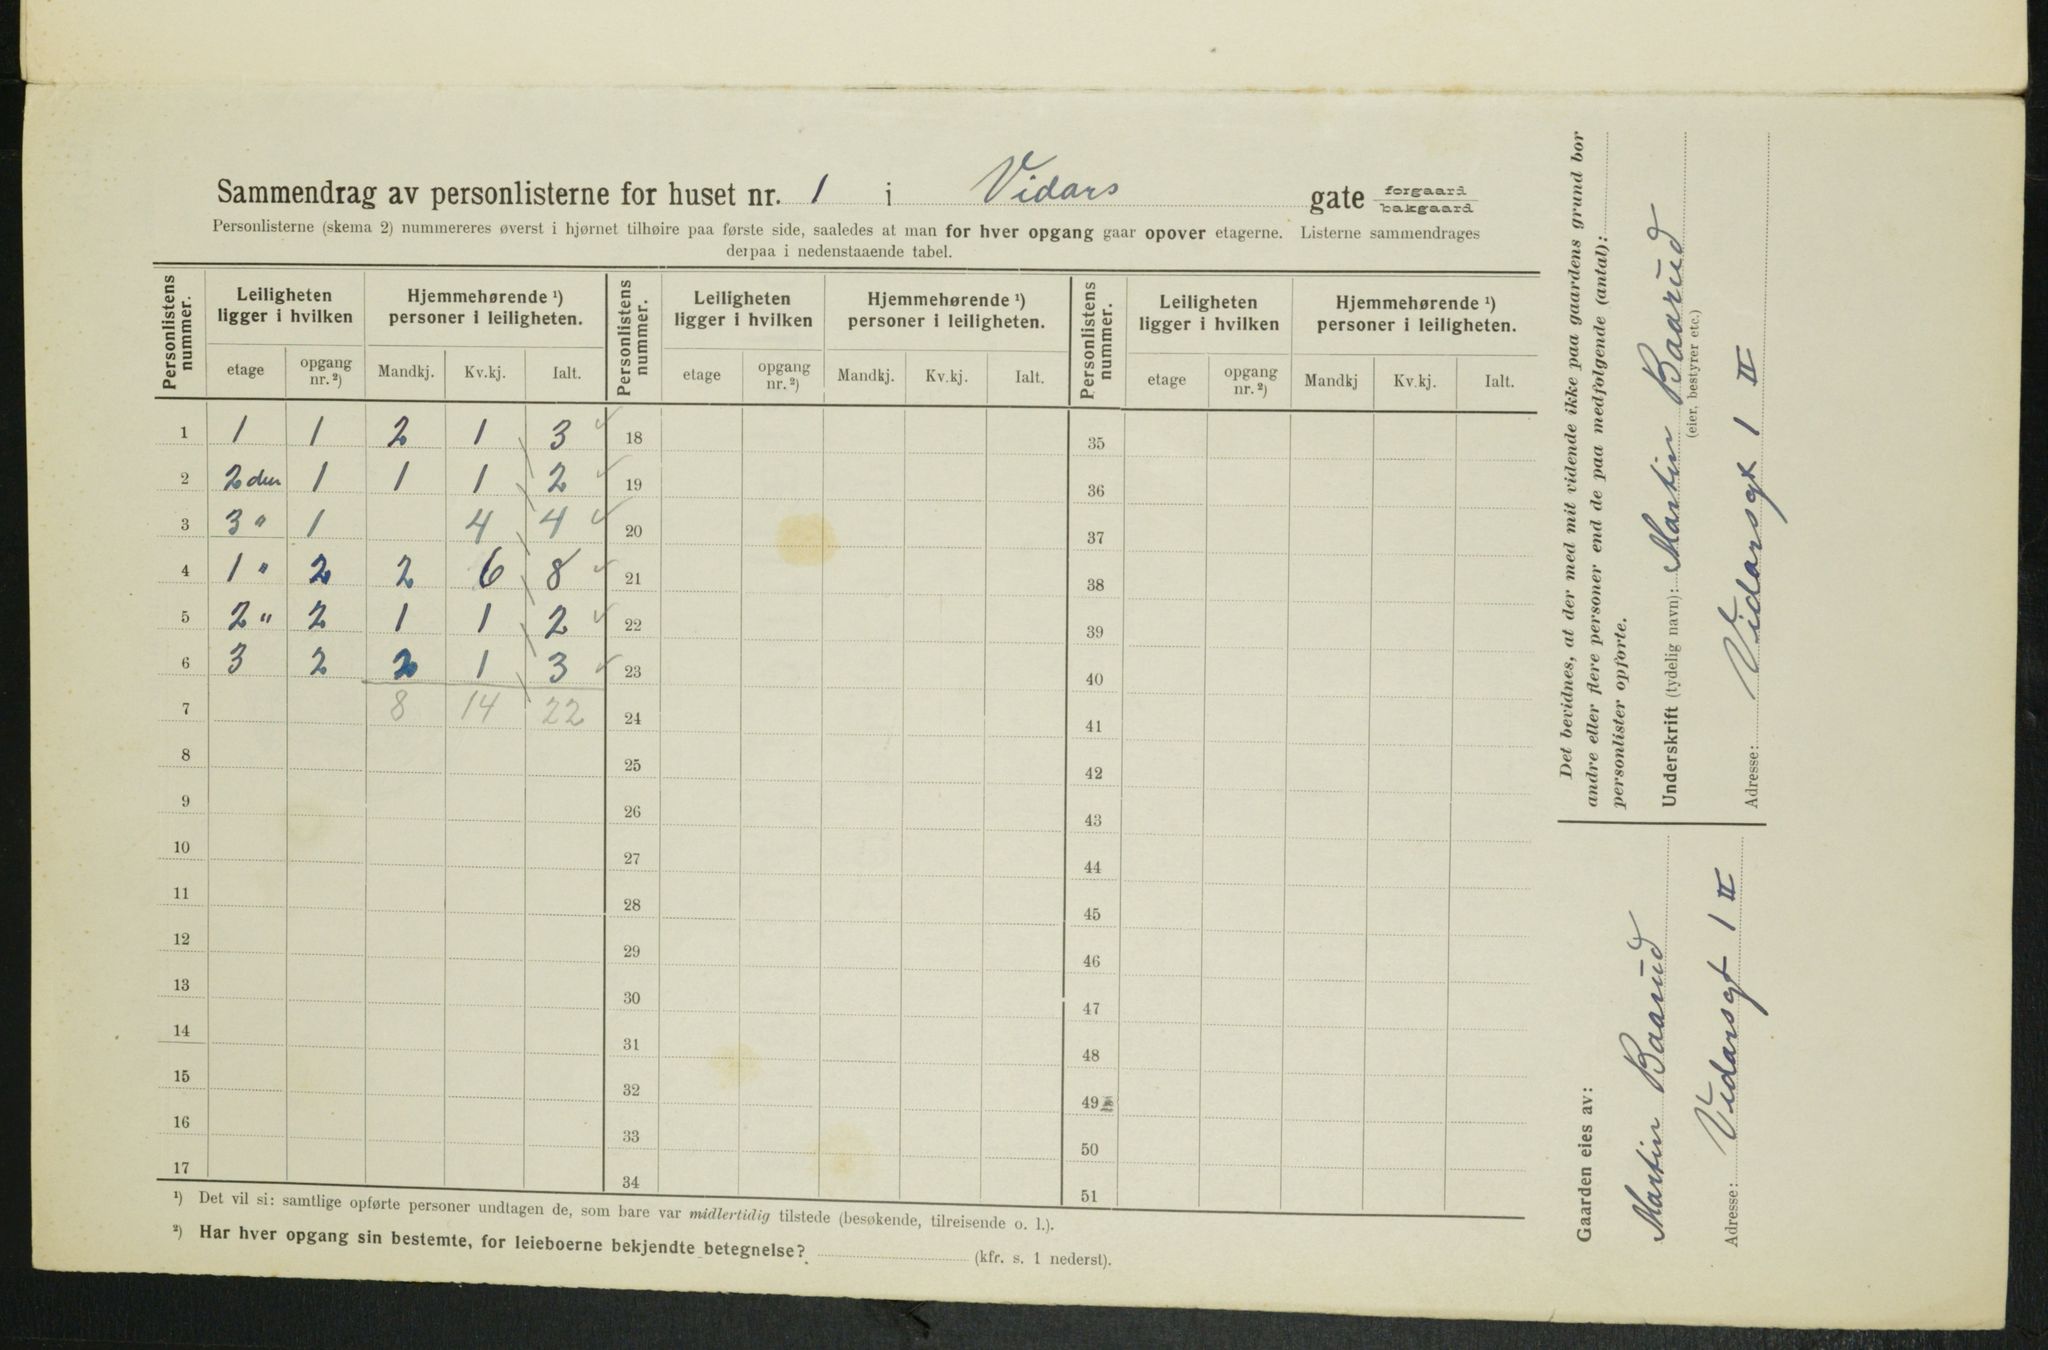 Sammendrag av personlisterne for huset nr. 1 i Vidars gate forgaard bakgaard
Personlisterne (skema 2) nummereres øverst i hjørnet tilhøire paa første side, saaledes at man for hver opgang gaar opover etagerne. Listerne sammendrages
derpaa i nedenstaaende tabel.
Personlistens nummer. Leiligheten ligger i hvilken Hjemmehørende ¹) personer i leiligheten. Personlistens nummer. Leiligheten ligger i hvilken Hjemmehørende ¹) personer i leiligheten. Personlistens nummer. Leiligheten ligger i hvilken Hjemmehørende ¹) personer i leiligheten.
etage opgang nr. ²) Mandkj. Kv.kj. Ialt. etage opgang nr. ²) Mandkj. Kv.kj. Ialt. etage opgang nr. ²) Mandkj Kv.kj. Ialt.
1 1 1 2 1 3 18 35
2 2 den 1 1 1 2 19 36
3 3 " 1 4 4 20 37
4 1 " 2 2 6 8 21 38
5 2 " 2 1 1 2 22 39
6 3 2 2 1 3 23 40
7 8 14 22 24 41
8 25 42
9 26 43
10 27 44
11 28 45
12 29 46
13 30 47
14 31 48
15 32 49
16 33 50
17 34 51
¹) Det vil si: samtlige opførte personer undtagen de, som bare var midlertidig tilstede (besøkende, tilreisende o. l.).
²) Har hver opgang sin bestemte, for leieboerne bekjendte betegnelse? (kfr. s. 1 nederst).
Det bevidnes, at der med mit vidende ikke paa gaardens grund bor
andre eller flere personer end de paa medfølgende (antal):
personlister opførte.
Underskrift (tydelig navn): Martin Baarud
(eier, bestyrer etc.)
Adresse: Vidarsgt 1 II
Gaarden eies av:
Martin Baarud
Adresse: Vidarsgt 1 II